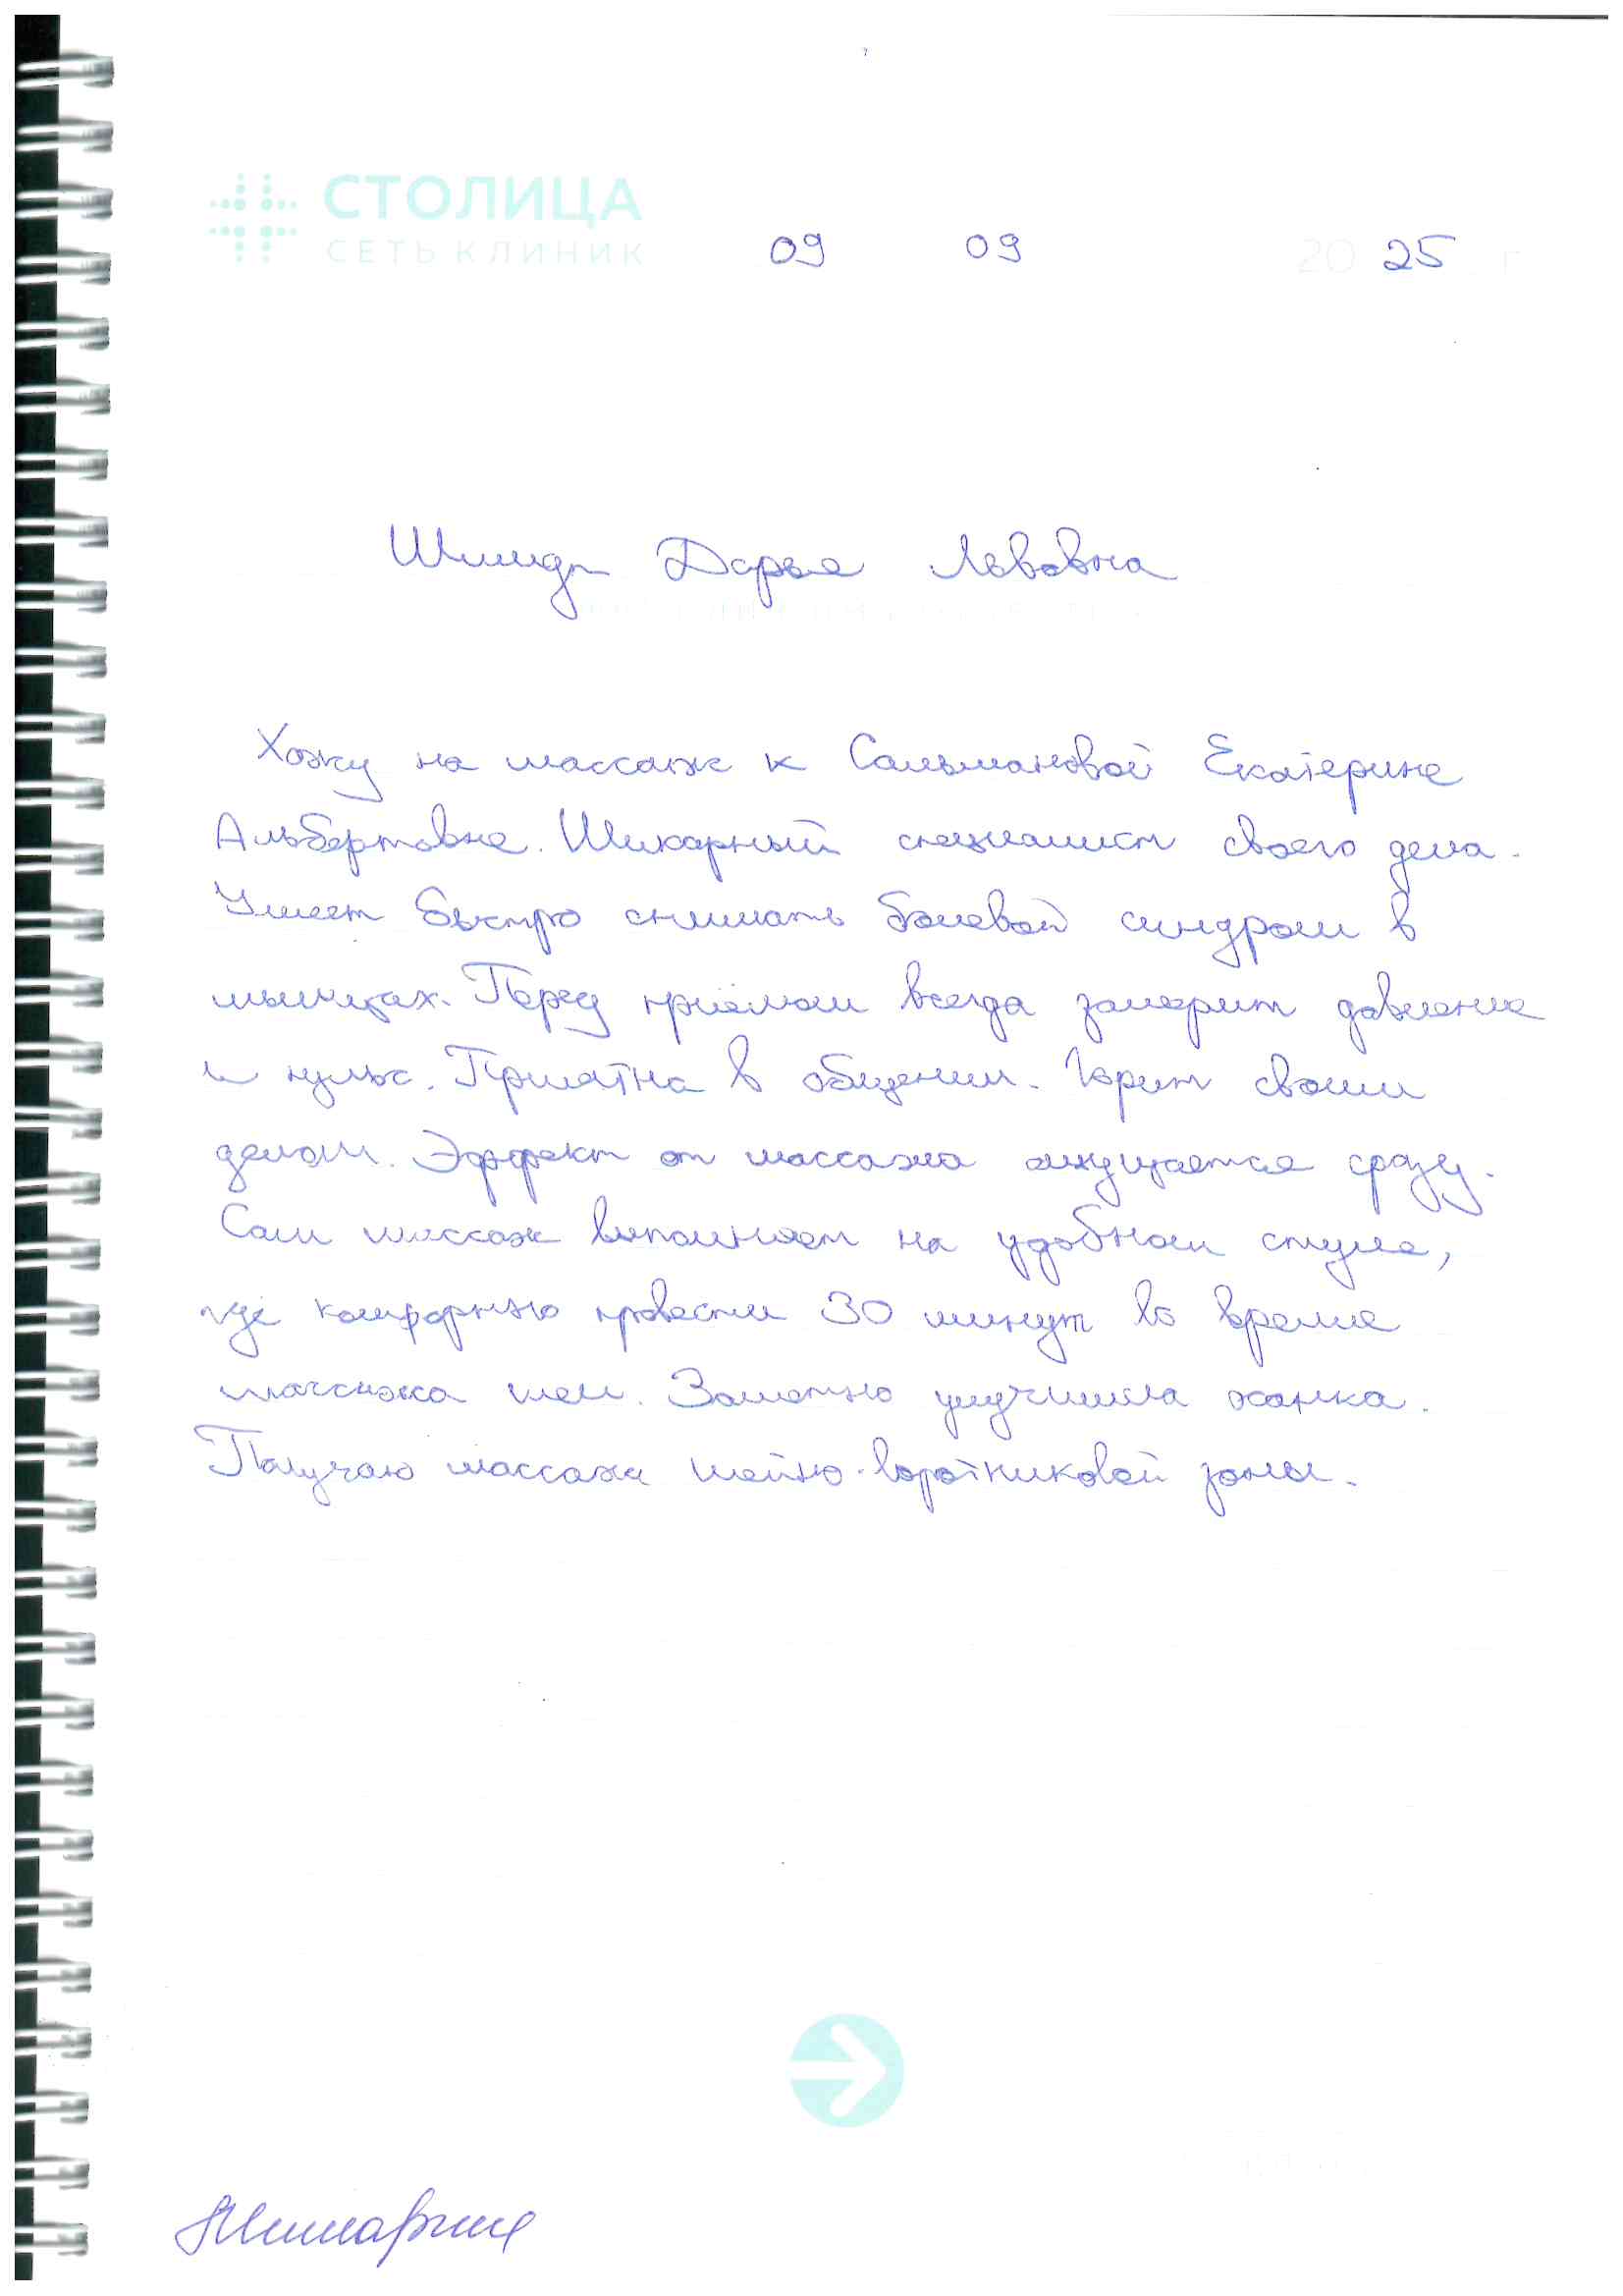 СТОЛИЦА
СЕТЬ КЛИНИК
09 09 2025 г
Шмидт Дарья Львовна
Хожу на массаж к Сальмановой Екатерине
Альбертовне. Шикарный специалист своего дела.
Умеет быстро снимать болевой синдром в
мышцах. Перед приёмом всегда замерит давление
и пульс. Приятна в общении. Горит своим
делом. Эффект от массажа ощущается сразу.
Сам массаж выполняет на удобном стуле,
где комфортно провести 30 минут во время
массажа шеи. Заметно улучшила осанка.
Получаю массаж шейно-воротниковой зоны.